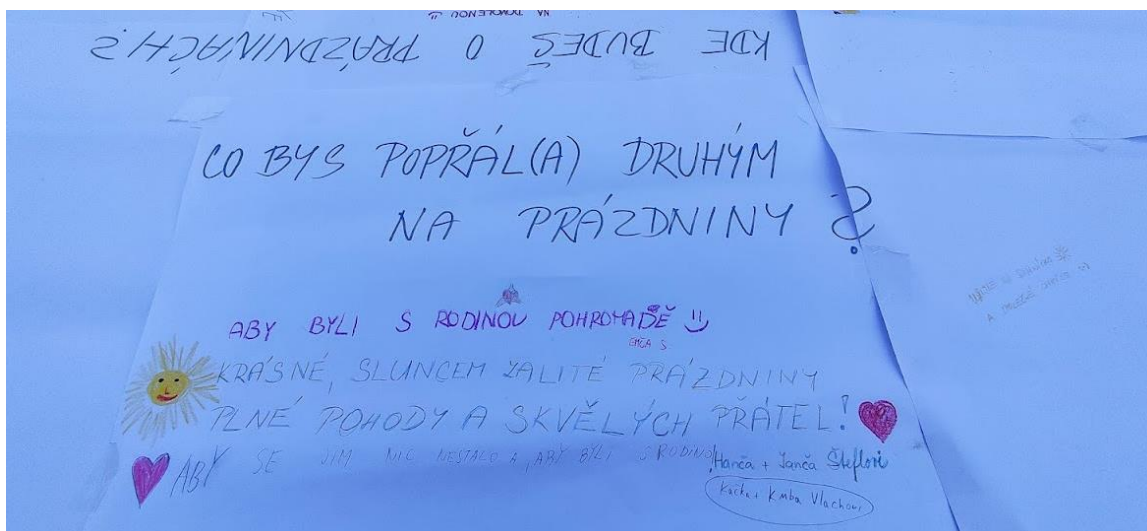 NA DOVOLENOU
KDE BUDEŠ O PRÁZDNINÁCH?
CO BYS POPŘÁL(A) DRUHÝM
NA PRÁZDNINY?
ABY BYLI S RODINOU POHROMADĚ
EMČA S
KRÁSNÉ, SLUNCEM ZALITÉ PRÁZDNINY
PLNÉ POHODY A SKVĚLÝCH PŘÁTEL!
ABY SE JIM NIC NESTALO A, ABY BYLI S RODINOU
Hanča + Janča Šteflovi
Kačka + Kmba Vlachovi